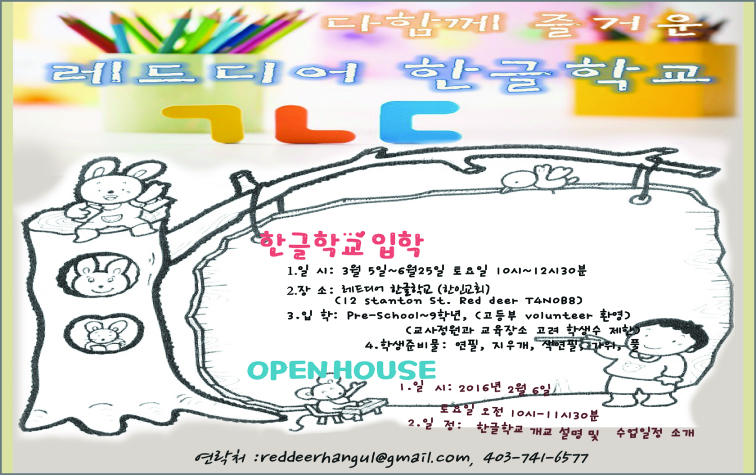 다함께 즐거운
레드디어 한글학교
ㄱㄴㄷ
한글학교 입학
1.일 시: 3월 5일~6월25일 토요일 10시~12시30분
2.장 소: 레드디어 한글학교 (한인교회)
(12 Stanton St. Red deer T4N0B8)
3.입 학: Pre-School~9학년, (고등부 volunteer 환영)
(교사정원과 교육장소 고려 학생수 제한)
4.학생준비물: 연필, 지우개, 색연필, 가위, 풀
OPEN HOUSE
1.일 시: 2016년 2월 6일
토요일 오전 10시-11시30분
2.일 정: 한글학교 개교 설명 및 수업일정 소개
연락처 :reddeerhangul@gmail.com, 403-741-6577